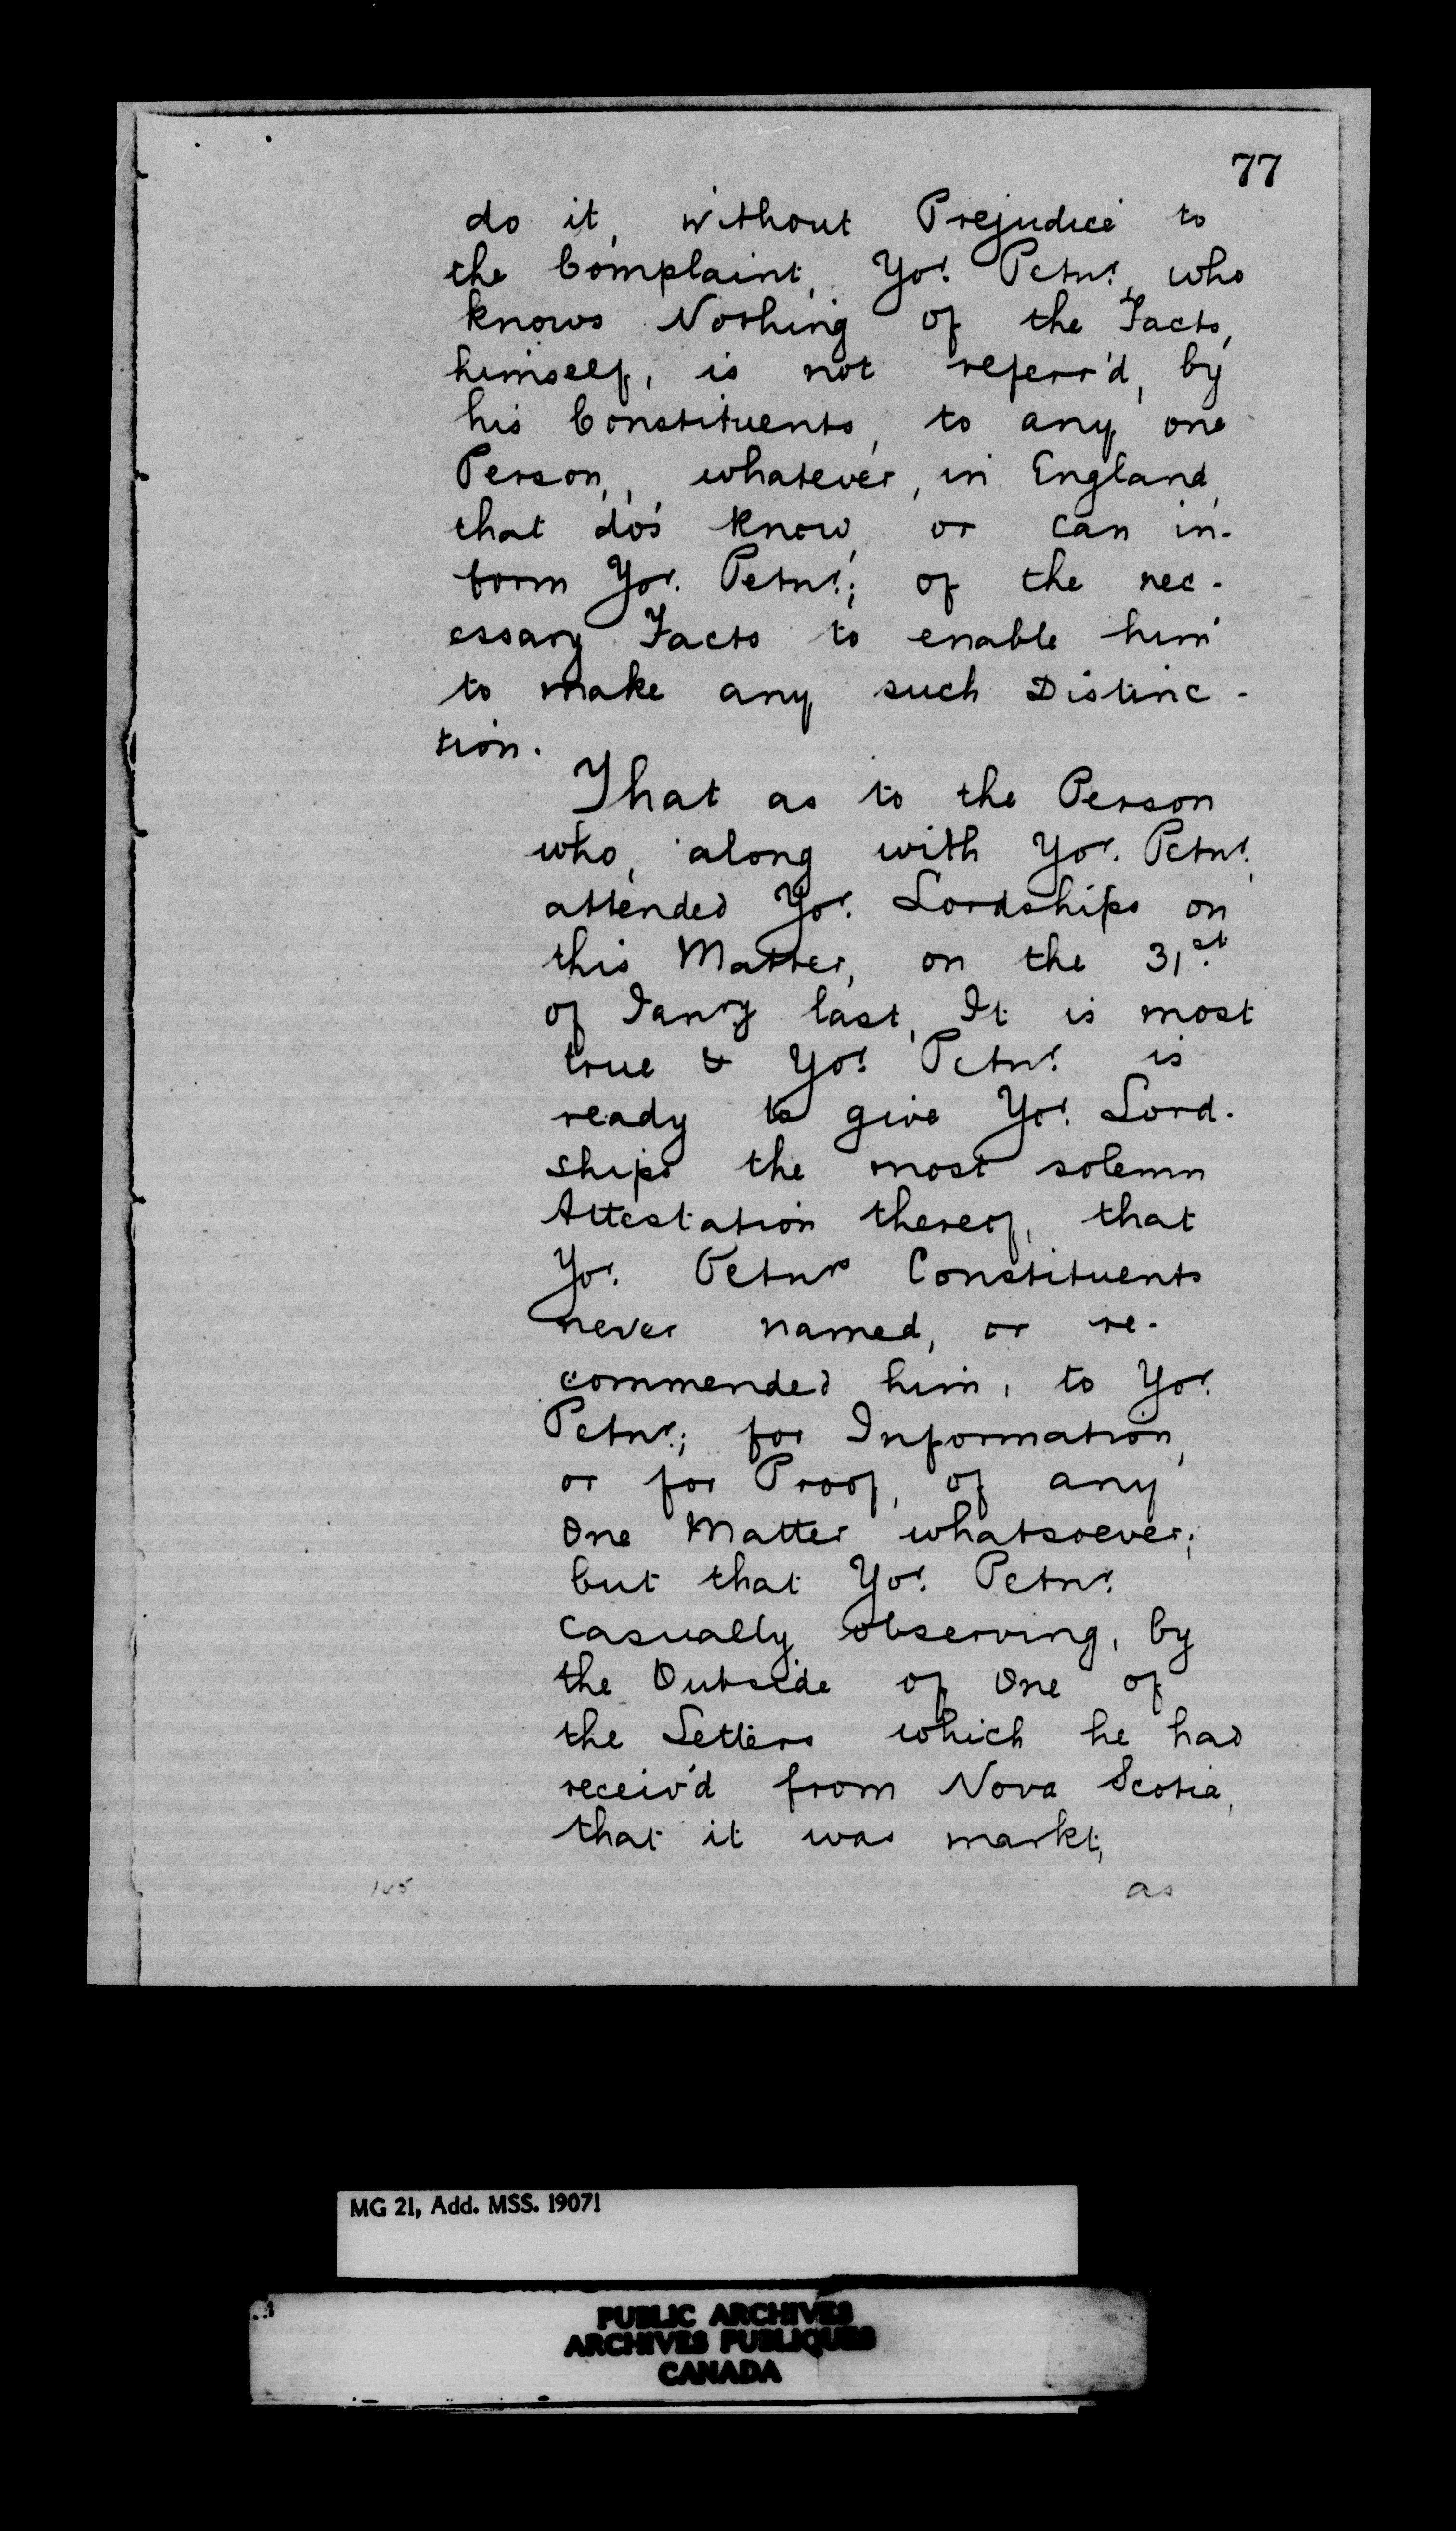 77
do it, without Prejudice to
the Complaint, Yor. Petnr., who
knows Nothing of the Facts,
himself, is not referr'd, by
his Constituents, to any one
Person, whatever, in England,
that do's know, or can in-
form Yor. Petnr.; of the nec-
essary Facts to enable him
to make any such Distinc-
tion.
That as to the Person
who, along with Yor. Petnr.
attended Yor. Lordships on
this Matter, on the 31st.
of Janry last, It is most
true & Yor. Petnr. is
ready to give Yor. Lord-
ships the most solemn
Attestation thereof, that
Yor. Petnrs Constituents
never named, or re-
commended him, to Yor.
Petnr.; for Information,
or for Proof, of any
One Matter whatsoever;
but that Yor. Petnr.
casually observing, by
the Outside of One of
the Letters which he had
receiv'd from Nova Scotia,
that it was markt,
as
MG 21, Add. MSS. 19071
PUBLIC ARCHIVES
ARCHIVES PUBLIQUES
CANADA